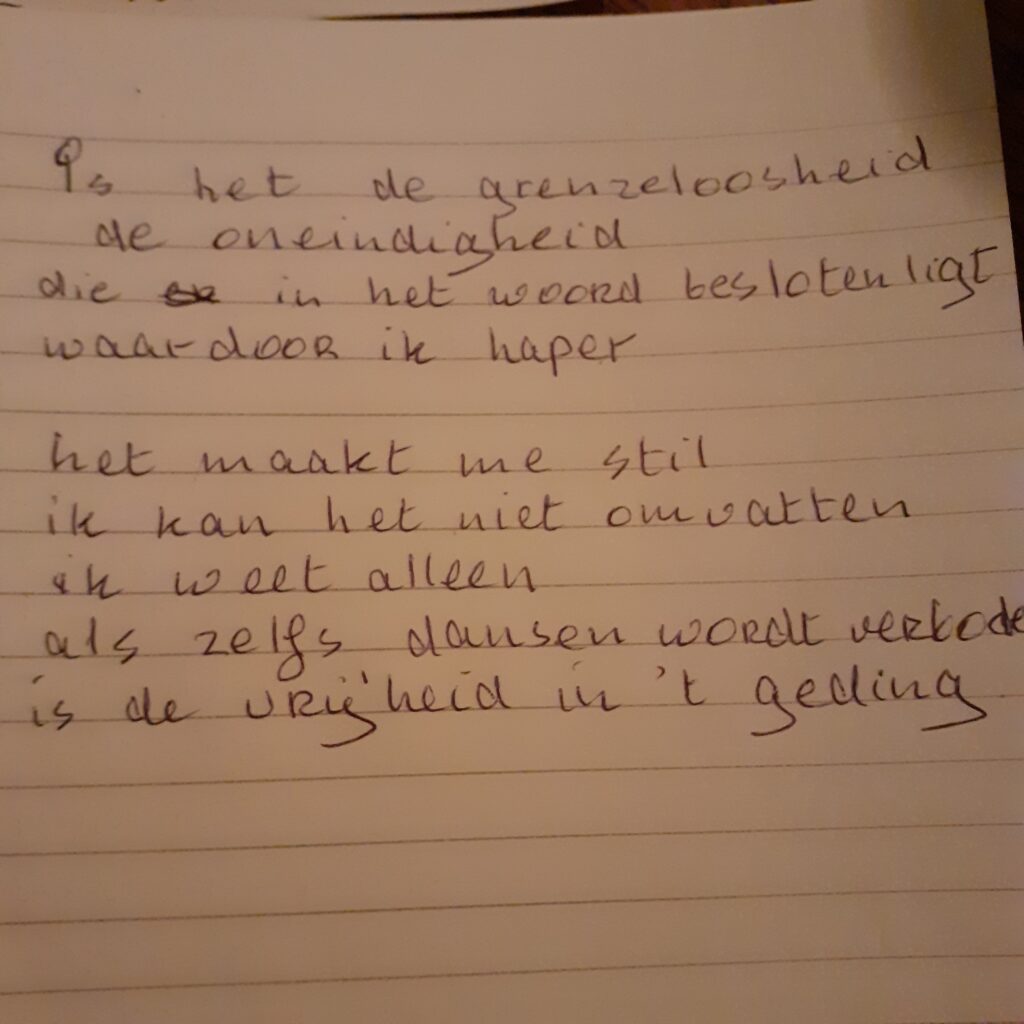 Is het de grenzeloosheid
de oneindigheid
die in het woord besloten ligt
waardoor ik haper
het maakt me stil
ik kan het niet omvatten
ik weet alleen
als zelfs dansen wordt verbode
is de vrijheid in 't geding